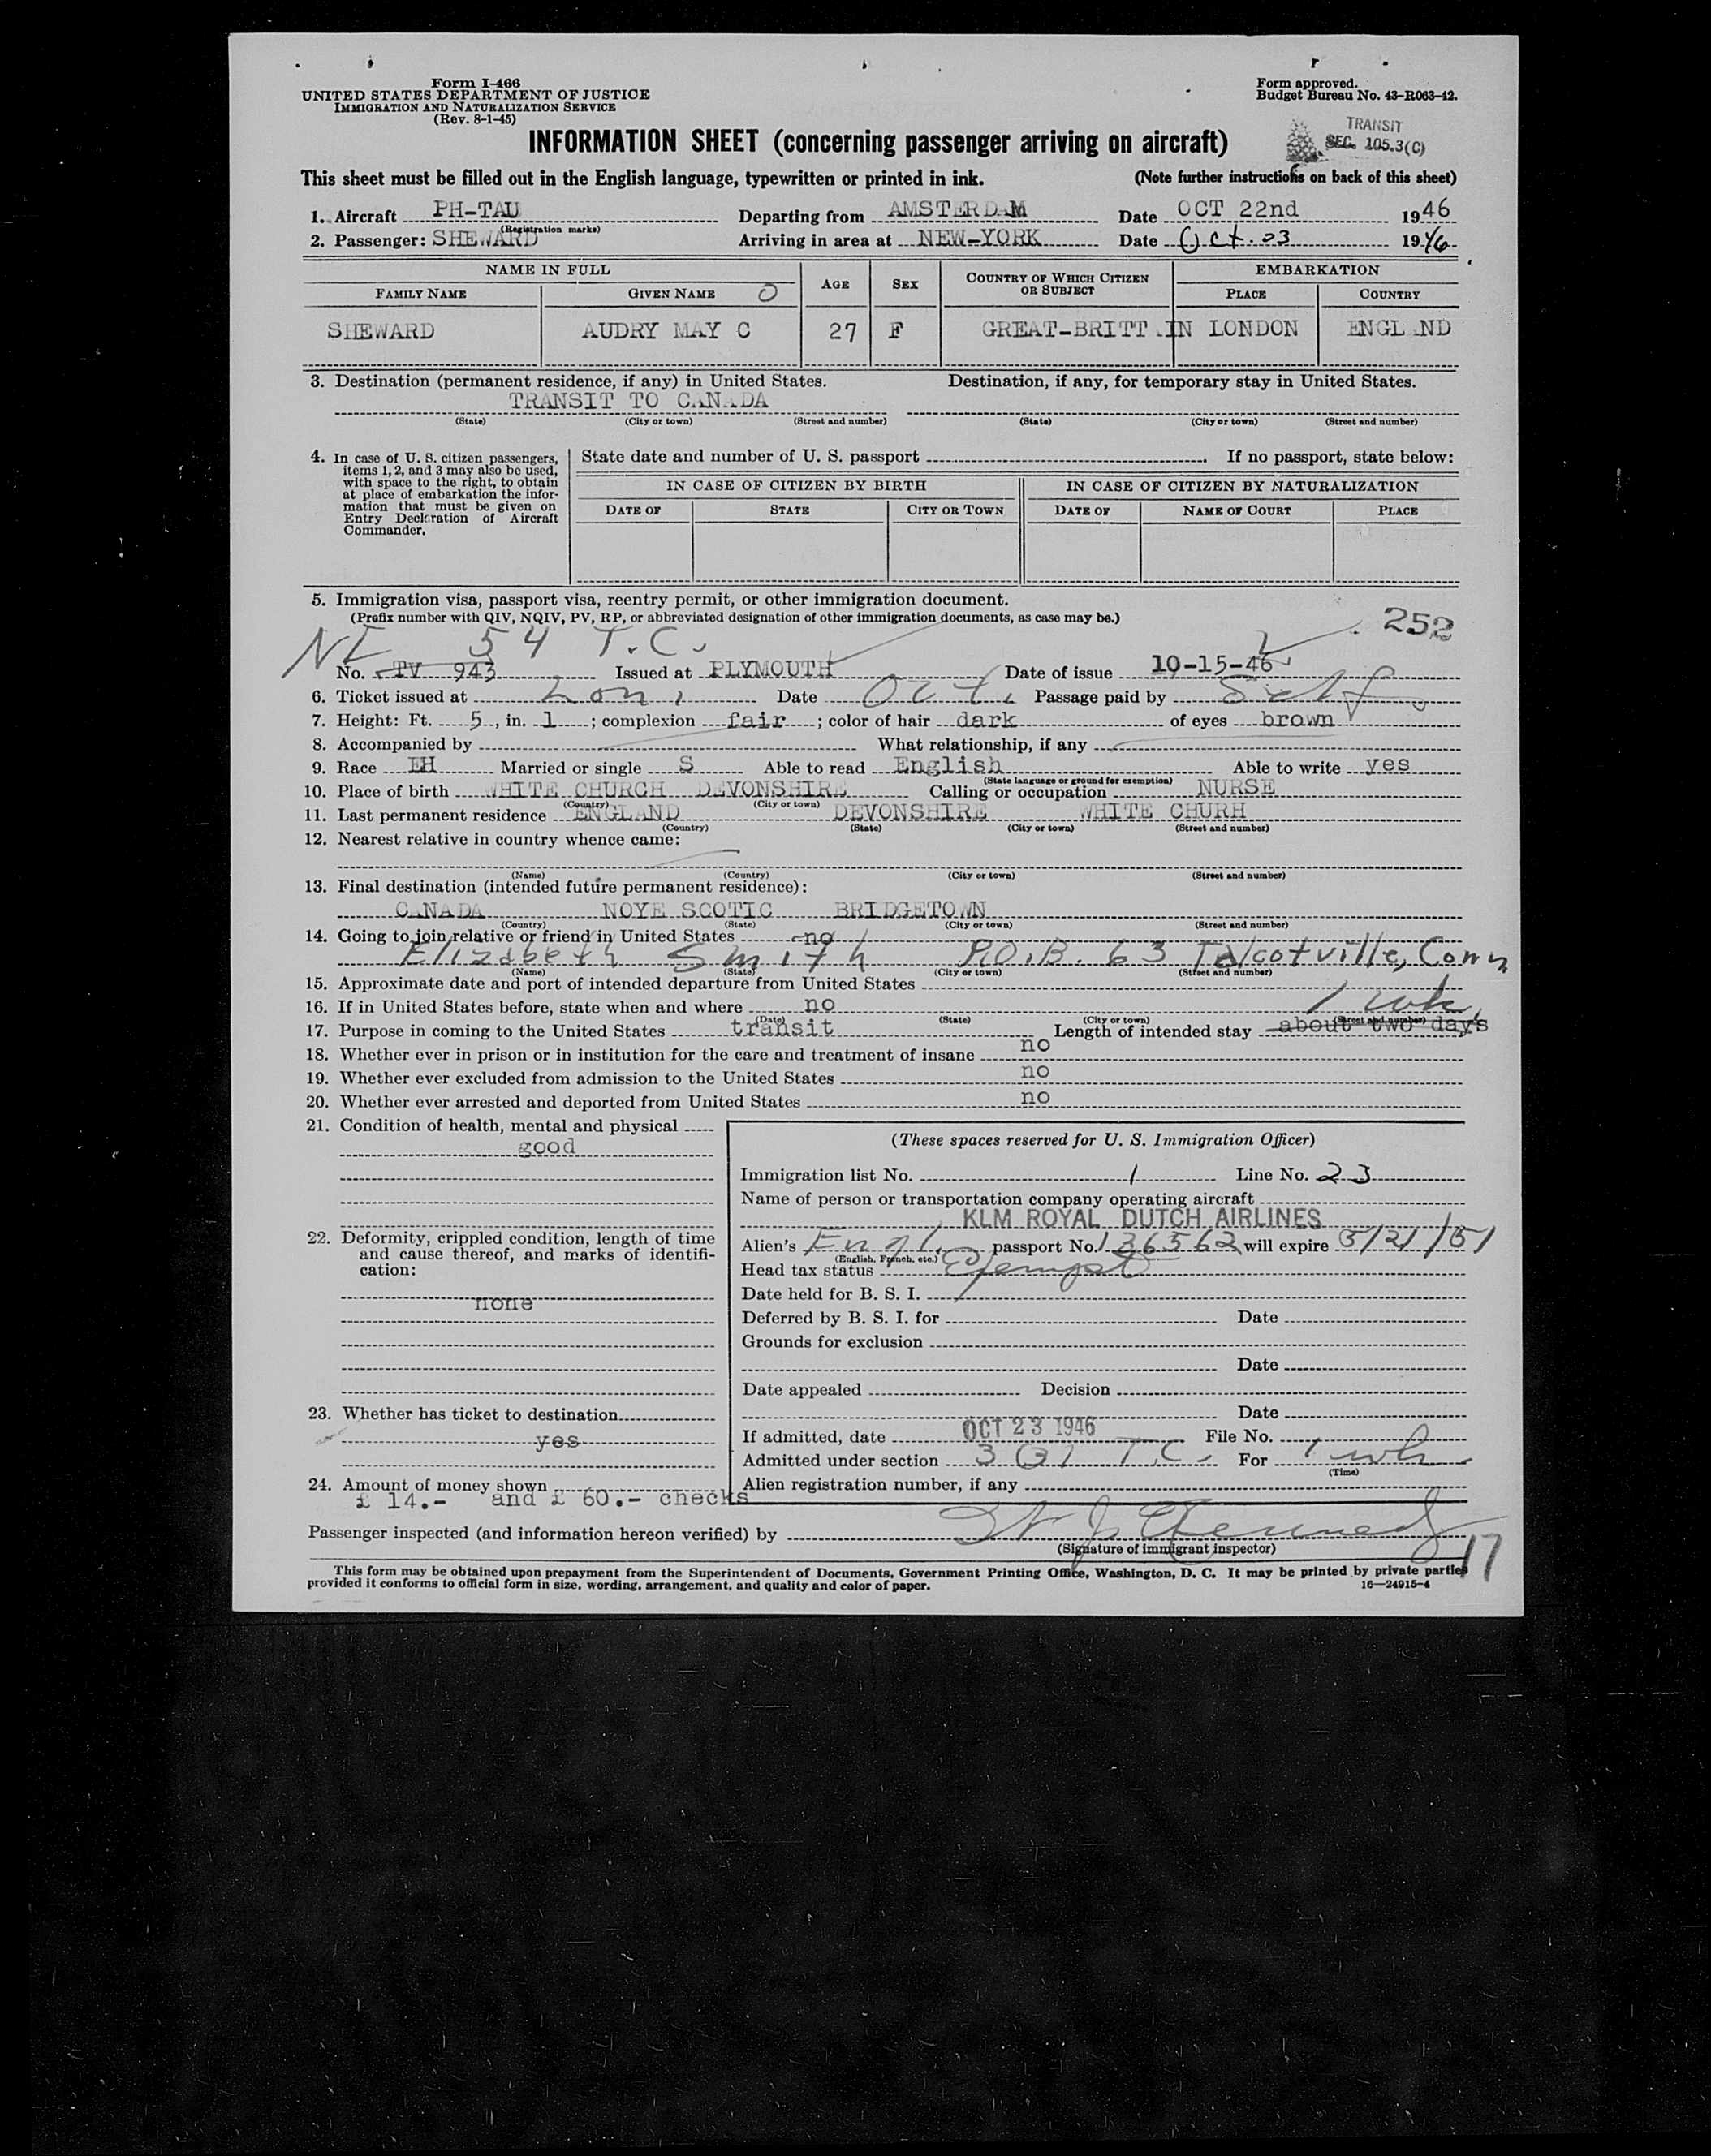 Form I-466
UNITED STATES DEPARTMENT OF JUSTICE
IMMIGRATION AND NATURALIZATION SERVICE
(Rev. 8-1-45)
Form approved.
Budget Bureau No. 43-R063-42.
INFORMATION SHEET (concerning passenger arriving on aircraft)
TRANSIT
SEC. 105.3(C)
This sheet must be filled out in the English language, typewritten or printed in ink. (Note further instructions on back of this sheet)
1. Aircraft PH-TAU Departing from AMSTERDAM Date OCT 22nd 1946
(Registration marks)
2. Passenger: SHEWARD Arriving in area at NEW-YORK Date Oct. 23 1946
NAME IN FULL AGE SEX COUNTRY OF WHICH CITIZEN OR SUBJECT EMBARKATION
FAMILY NAME GIVEN NAME O PLACE COUNTRY
SHEWARD AUDRY MAY C 27 F GREAT-BRITT.IN LONDON ENGL ND
3. Destination (permanent residence, if any) in United States. Destination, if any, for temporary stay in United States.
TRANSIT TO CANADA
(State) (City or town) (Street and number) (State) (City or town) (Street and number)
4. In case of U. S. citizen passengers, items 1, 2, and 3 may also be used, with space to the right, to obtain at place of embarkation the information that must be given on Entry Declaration of Aircraft Commander.
State date and number of U. S. passport If no passport, state below:
IN CASE OF CITIZEN BY BIRTH IN CASE OF CITIZEN BY NATURALIZATION
DATE OF STATE CITY OR TOWN DATE OF NAME OF COURT PLACE
5. Immigration visa, passport visa, reentry permit, or other immigration document.
(Prefix number with QIV, NQIV, PV, RP, or abbreviated designation of other immigration documents, as case may be.)
252
54 T.C.
No. TV 943 Issued at PLYMOUTH Date of issue 10-15-46
6. Ticket issued at Lon. Date Oct. Passage paid by Self
7. Height: Ft. 5, in. 1; complexion fair; color of hair dark of eyes brown
8. Accompanied by What relationship, if any
9. Race EH Married or single S Able to read English Able to write yes
(State language or ground for exemption)
10. Place of birth WHITE CHURCH DEVONSHIRE Calling or occupation NURSE
(Country) (City or town)
11. Last permanent residence ENGLAND DEVONSHIRE WHITE CHURH
(Country) (State) (City or town) (Street and number)
12. Nearest relative in country whence came:
(Name) (Country) (City or town) (Street and number)
13. Final destination (intended future permanent residence):
CANADA NOYE SCOTIC BRIDGETOWN
(Country) (State) (City or town) (Street and number)
14. Going to join relative or friend in United States no
Elizabeth Smith P.O.B. 63 Talcotville, Conn
(Name) (State) (City or town) (Street and number)
15. Approximate date and port of intended departure from United States
16. If in United States before, state when and where no 1 wk.
(Date) (State) (City or town) (Street and number)
17. Purpose in coming to the United States transit Length of intended stay about two days
18. Whether ever in prison or in institution for the care and treatment of insane no
19. Whether ever excluded from admission to the United States no
20. Whether ever arrested and deported from United States no
21. Condition of health, mental and physical
good
22. Deformity, crippled condition, length of time and cause thereof, and marks of identification:
none
23. Whether has ticket to destination
yes
24. Amount of money shown
£ 14.- and £ 60.- checks
(These spaces reserved for U. S. Immigration Officer)
Immigration list No. 1 Line No. 23
Name of person or transportation company operating aircraft
KLM ROYAL DUTCH AIRLINES
Alien's Engl. passport No. 136562 will expire 5/21/51
(English, French, etc.)
Head tax status Exempt
Date held for B. S. I.
Deferred by B. S. I. for Date
Grounds for exclusion
Date
Date appealed Decision
Date
If admitted, date OCT 23 1946 File No.
Admitted under section 3(3) T.C. For 1 wk
(Time)
Alien registration number, if any
Passenger inspected (and information hereon verified) by
(Signature of immigrant inspector)
17
This form may be obtained upon prepayment from the Superintendent of Documents, Government Printing Office, Washington, D. C. It may be printed by private parties
provided it conforms to official form in size, wording, arrangement, and quality and color of paper. 16—24915-4